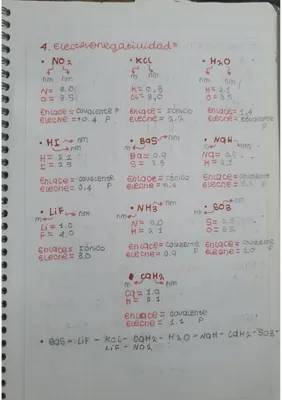 4. Electronegatividad
• NO2
nm nm
O = 3.5
Enlace = covalente P
• KCL
m nm
K = 0.8
CL = 3.0
Enlace = iónico
Elecne = 2.2
• H2O
nm nm
H = 2.1
O = 3.5
Enlace = covalente
Elecne = 1.4 P
• HI
nm nm
H = 2.1
I = 2.5
Enlace = covalente
Elecne = 0.4 P
• BaS
m nm
Ba = 0.9
Enlace =
Elecne =
• NaH
m nm
Na =
H = 2.1
Enlace = covalente
Elecne = P
• LiF
m nm
Li = 1.0
F = 4.0
Enlace = iónico
Elecne = 3.0
• NH3
nm
H = 2.1
Enlace = covalente
Elecne = 0.9 P
• SO3
nm nm
O = 3.5
Enlace = covalente
Elecne = 1.0 P
• CaH2
m nm
Ca = 1.0
H = 2.1
Enlace = covalente
Elecne = 1.1 P
• BaS = LiF - KCL - CaH2 - H2O - NaH - CaH2 - SO3 -
LiF - NO2